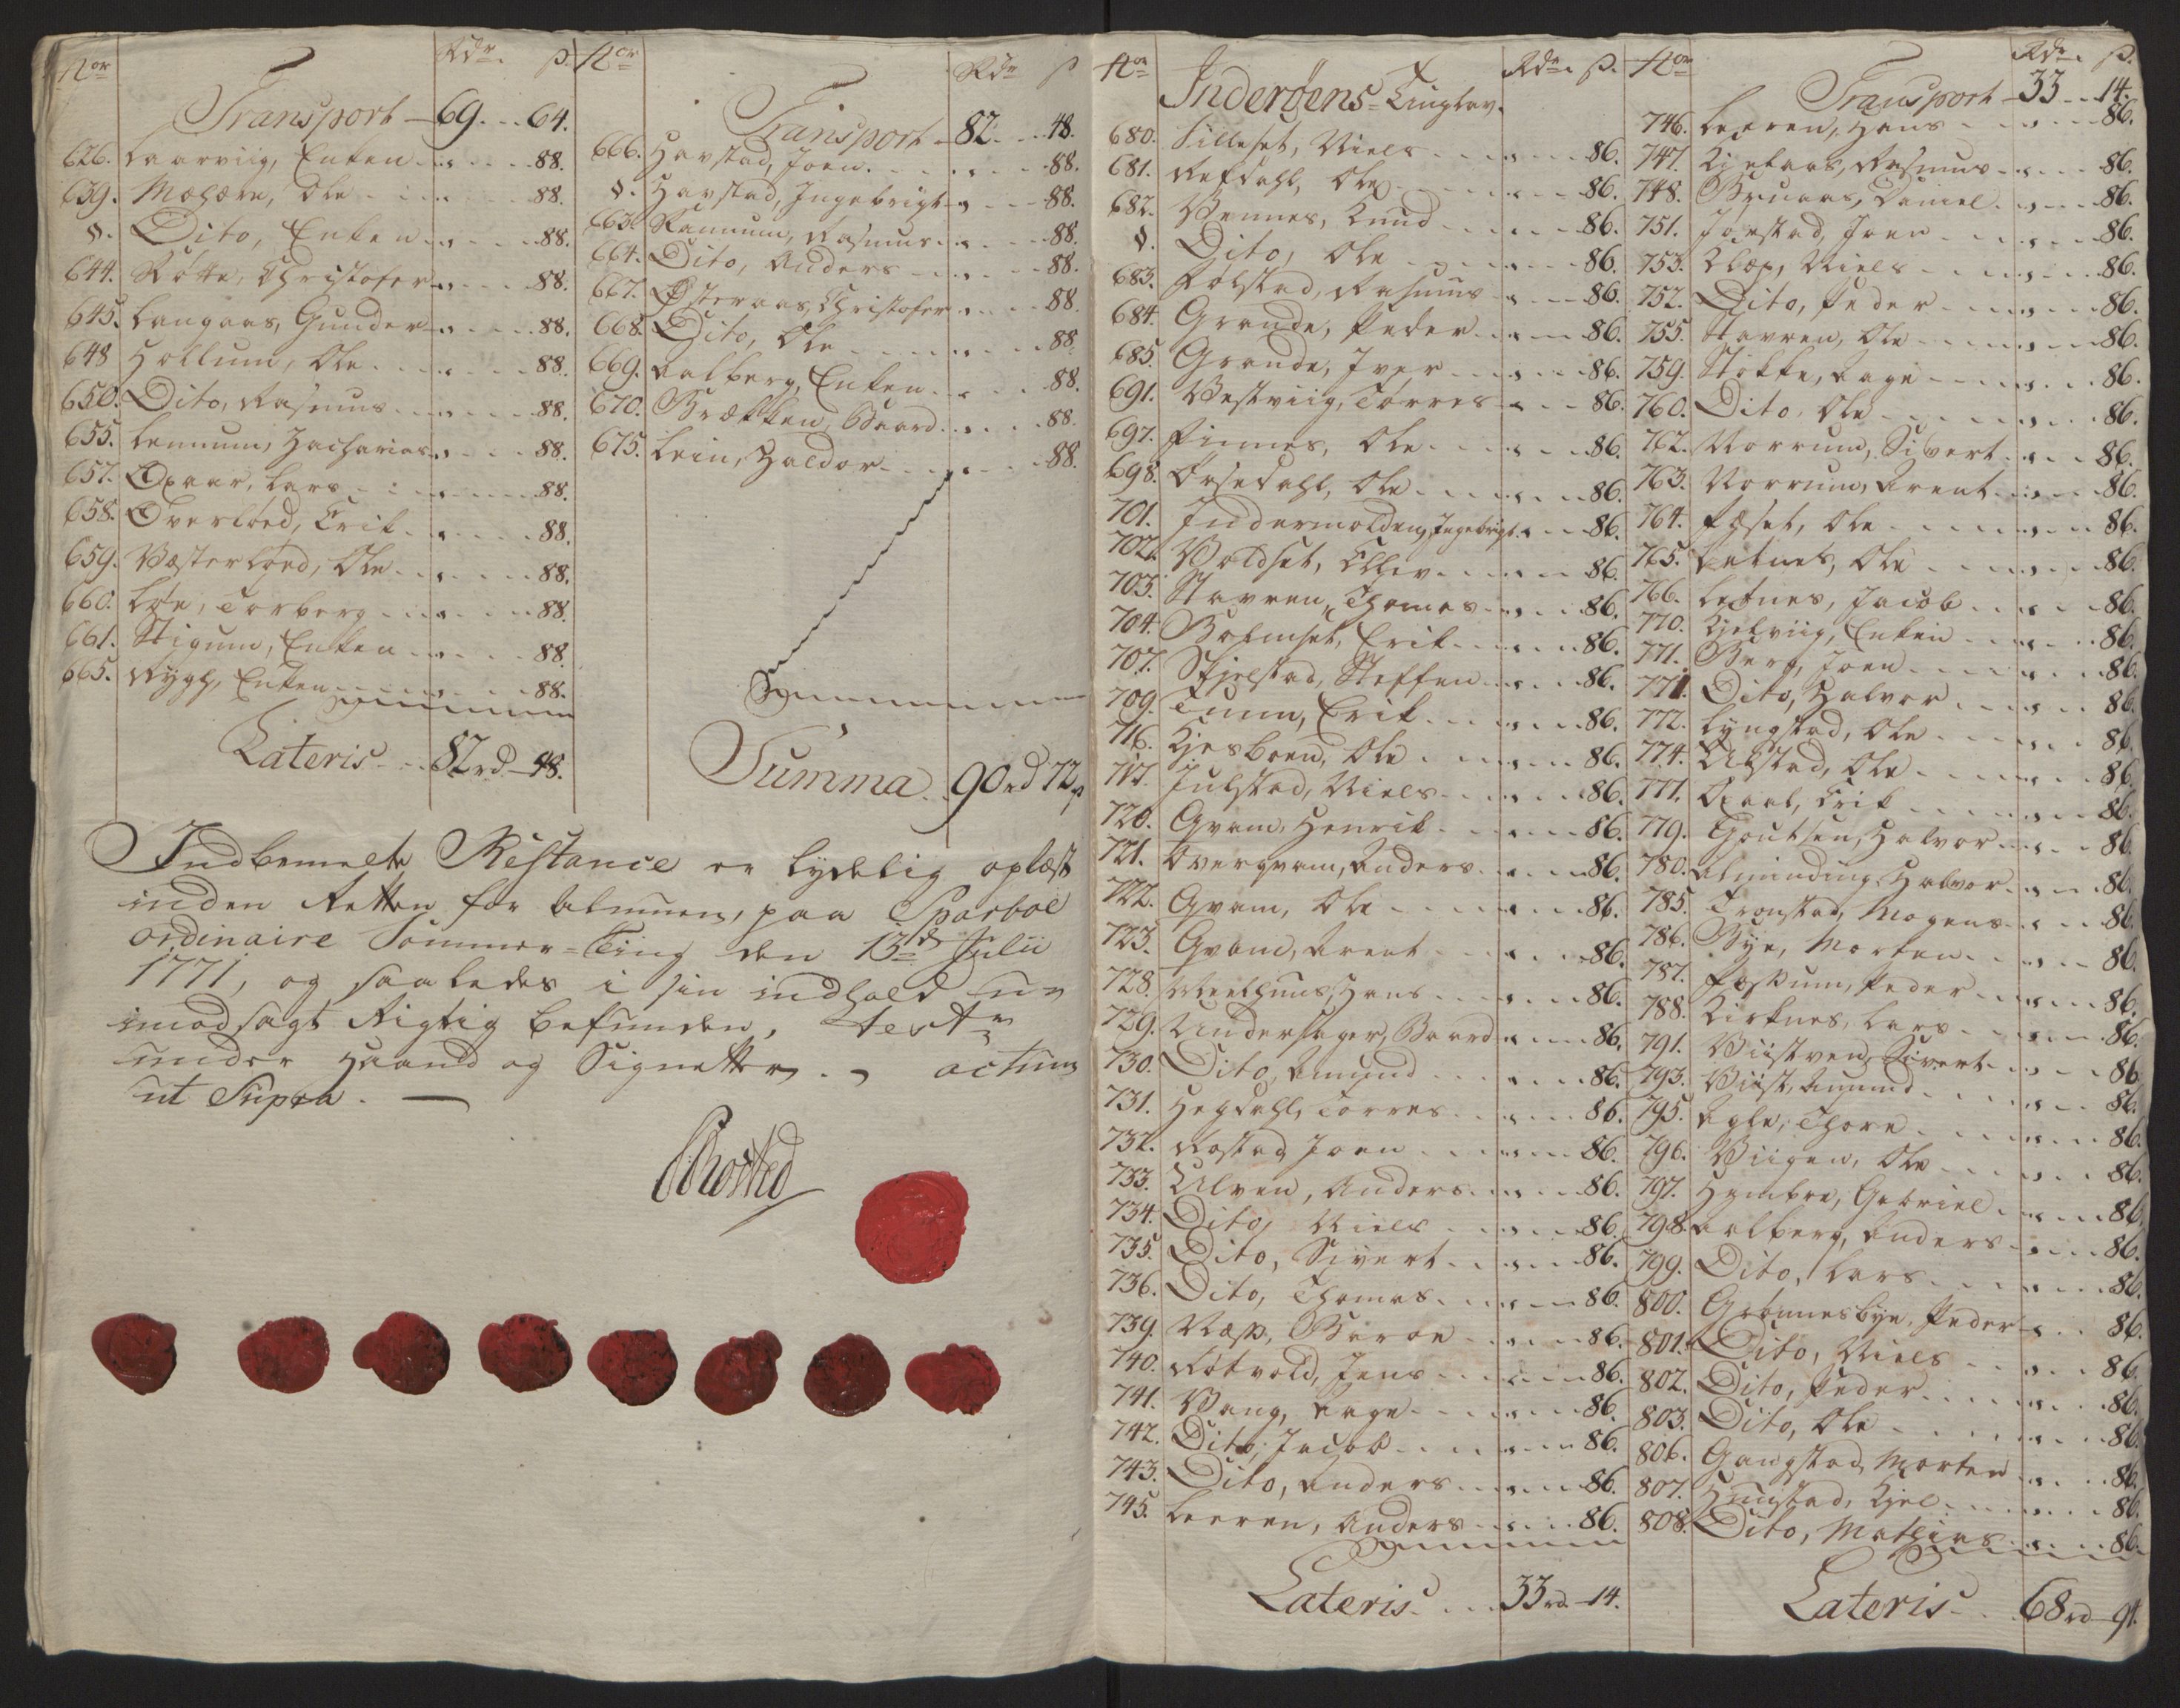 Nor Rdr. ß.
Transport 69. 64.
626. Laarviig, Enken 88.
639. Mæhære, Ole 88.
§. Dito, Enken 88.
644. Røtte, Christofer 88.
645. Langaas, Gunder 88.
648 Hollum, Ole 88.
650. Dito, Rasmus 88.
655. Lennum, Zacharias 88.
657. Opaar, Lars 88.
658. Overløed, Erik 88.
659. Væsterløed, Ole 88.
660. Løe, Torberg 88.
661. Stigum, Enken 88.
665. Rygh, Enken 88.
Lateris 82rd 48.
Nor Rdr ß
Transport 82. 48.
666. Havstad, Joen 88.
§. Havstad, Ingebrigt 88.
663. Ramnum, Rasmus 88.
664. Dito, Anders 88.
667. Østeraas, Christofer 88.
668. Dito, Ole 88.
669. Aalberg, Enken 88.
670. Brækken, Baard 88.
675. Lein, Haldor 88.
Summa 90rd 72ß
Indbemelte Restance er lydelig oplæst
inden Retten for Almuen, paa Sparboe
ordinaire Sommer-Ting den 13de Julii
1771, og saaledes i sin indhold un
imodsagt Rigtig befunden, test
under Haand og Signetter. actum
ut Supra.
Nor Rdr. ß.
Inderøens Tinglav.
680. Silleset, Niels 86.
681. Refdahl, Ole 86.
682. Vennes, Knud 86.
§. Dito, Ole 86.
683. Følstad, Rasmus 86.
684. Grande, Peder 86.
685. Grande, Iver 86.
691. Vestviig, Torres 86.
697. Finnes, Ole 86.
698. Ørsedahl, Ole 86.
701. Indermolden, Ingebrigt 86.
702. Voldset, Elliev 86.
703. Stavren, Thomas 86.
704. Bolmset, Erik 86.
707. Skjelstad, Steffen 86.
709. Tuun, Erik 86.
716. Kjesboen, Ole 86.
717. Julstad, Niels 86.
720. Qvam, Henrik 86.
721. Overqvam, Anders 86.
722. Qvam, Ole 86.
723. Qvam, Arent 86.
728. Meelhuus, Hans 86.
729. Undersager, Baard 86.
730. Dito, Amund 86.
731. Hegdahl, Torres 86.
732. Rostad, Joen 86.
733. Ulven, Anders 86.
734. Dito, Niels 86.
735. Dito, Sivert 86.
736. Dito, Thomas 86.
739. Næss, Baroe 86.
740. Røtvold, Jens 86.
741. Vang, Aage 86.
742. Dito, Jacob 86.
743. Dito, Anders 86.
745. Leeren, Anders 86.
Lateris 33rd 14.
Nor Rdr. ß.
Transport 33 14.
746. Leeren, Hans 86.
747. Kjelaas, Rasmus 86.
748. Bruaas, Daniel 86.
751. Jørstad, Joen 86.
753. Klæp, Niels 86.
752. Dito, Peder 86.
755. Stavren, Ole 86.
759. Stokke, Aage 86.
760. Dito, Ole 86.
762. Norrum, Sivert 86.
763. Norrum, Arent 86.
764. Fæset, Ole 86.
765. Letnes, Ole 86.
766. Letnes, Jacob 86.
770. Kjelviig, Enken 86.
771. Berg, Joen 86.
771. Dito, Halvor 86.
772. Lyngstad, Ole 86.
774. Ulstad, Ole 86.
777. Qvaal, Erik 86.
779. Goutsen, Halvor 86.
780. Alminding, Halvor 86.
785. Tronstad, Mogens 86.
786. Bye, Morten 86.
787. Fossum, Peder 86.
788. Kirknes, Lars 86.
791. Viistven, Sivert 86.
793. Viist, Amund 86.
795. Agle, Thore 86.
796. Viigen, Ole 86.
797. Hembre, Gabriel 86.
798. Aalberg, Anders 86.
799. Dito, Lars 86.
800. Grønnesbye, Peder 86.
801. Dito, Niels 86.
802. Dito, Peder 86.
803. Dito, Ole 86.
806. Gangstad, Morten 86.
807. Hunstad, Kjel 86.
808. Dito, Mathias 86.
Lateris 68rd 94.